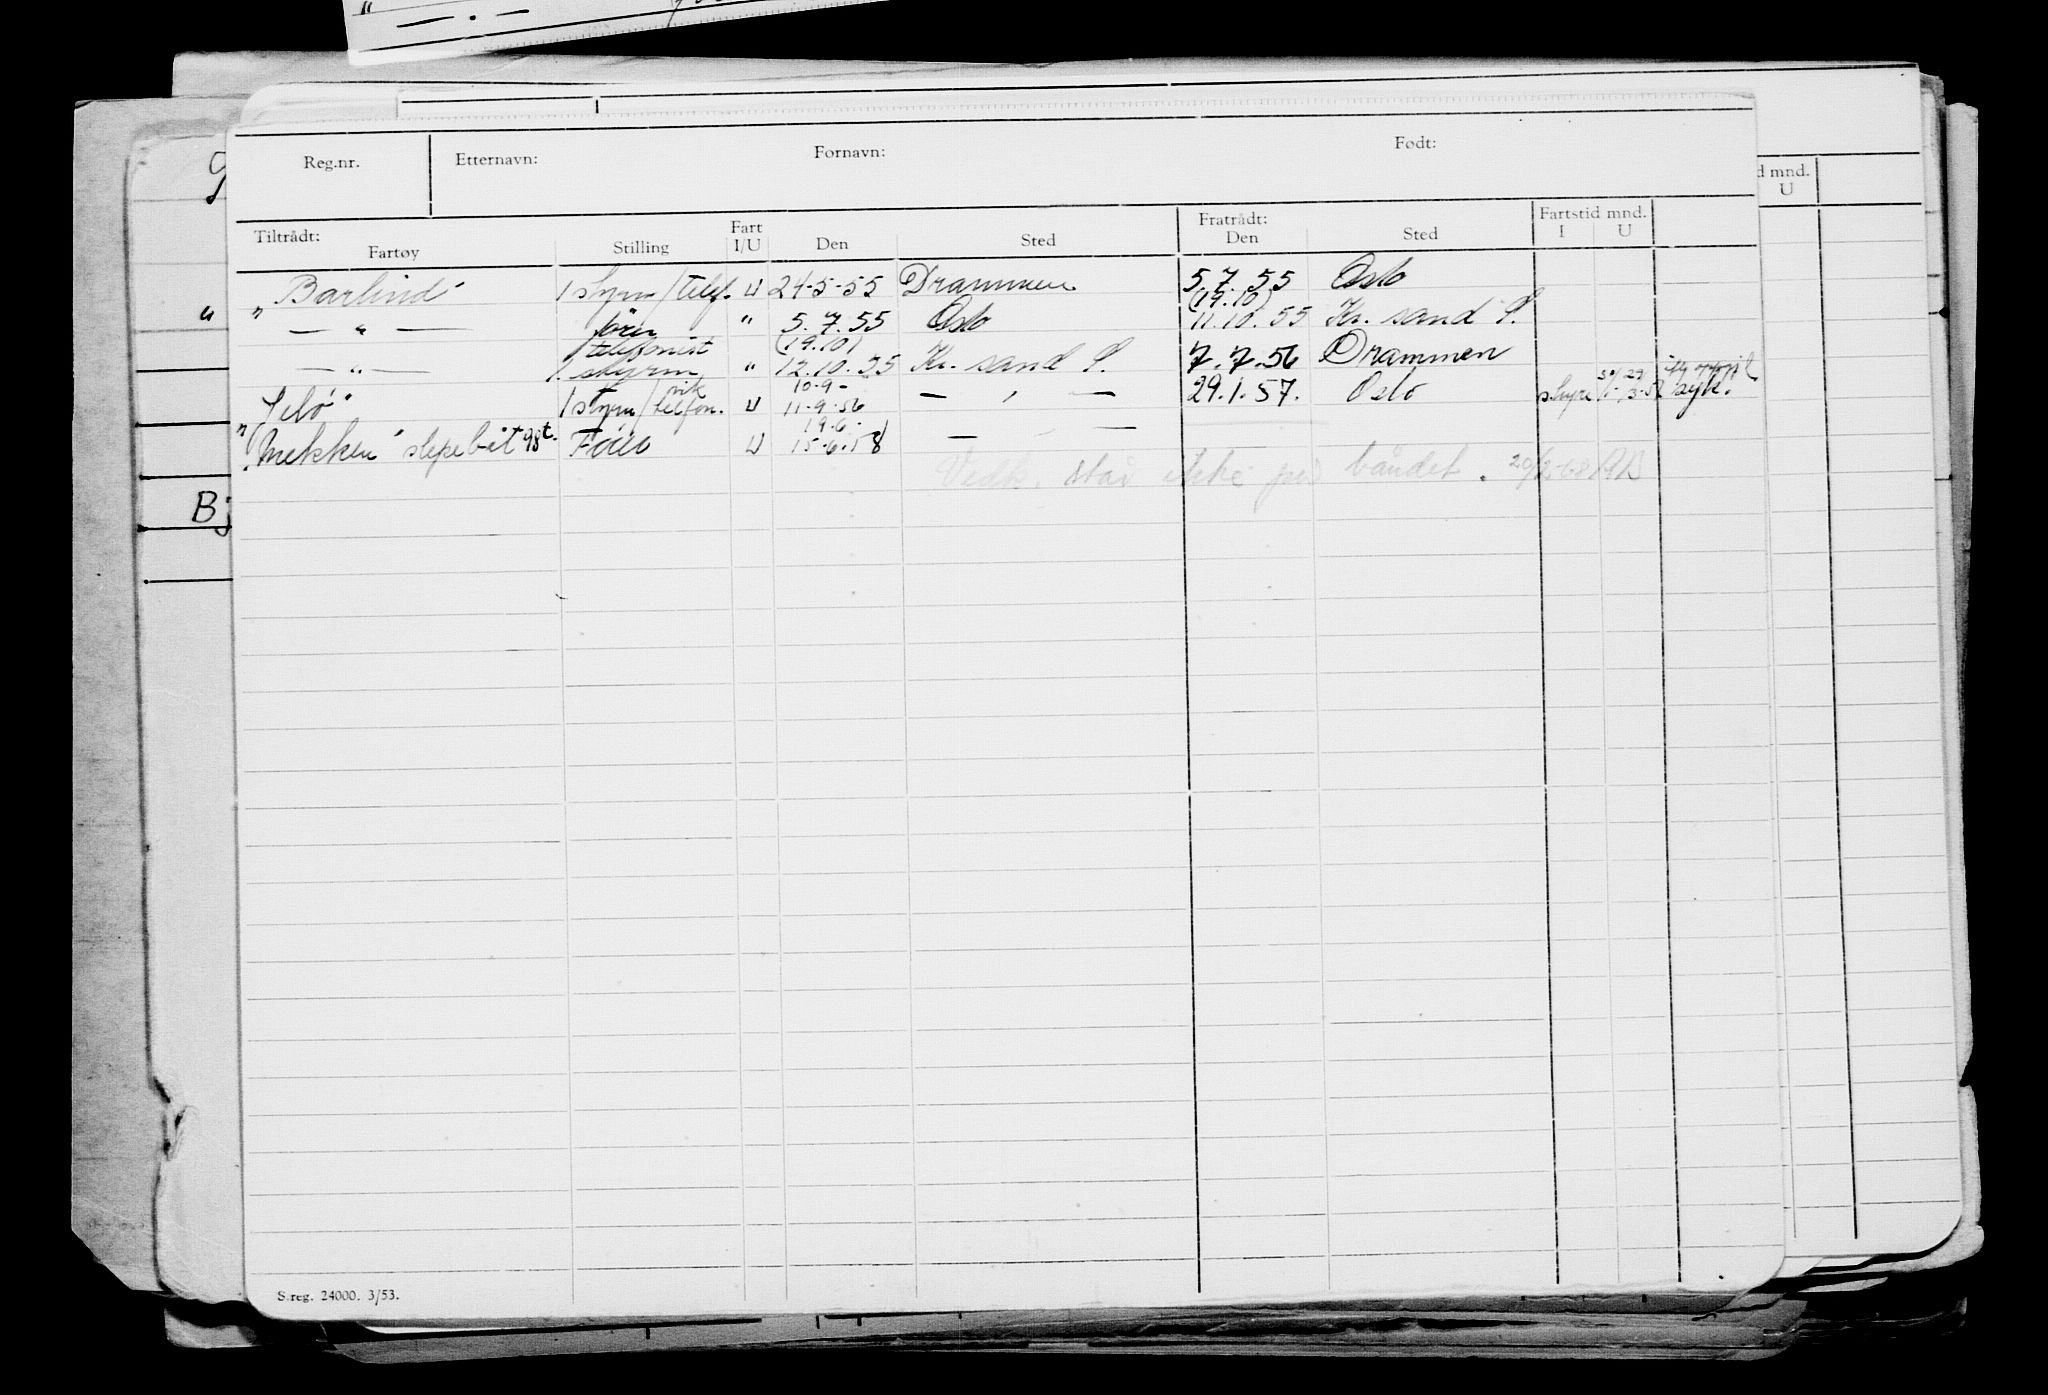 Reg.nr. Etternavn: Fornavn: Født:
d mnd.
U
Tiltrådt: Fartøy Stilling Fart I/U Den Sted Fratrådt: Den Sted Fartstid mnd. I U
" Barlind" 1 styrm/telef. U 24-5-55 Drammen 5.7.55 Oslo
(19.10)
" — " — fører " 5.7.55 Oslo 11.10.55 Kr. sand S.
telefonist (19.10)
— " — 1. styrm " 12.10.55 Kr. sand S. 7.7.56 Drammen
vik 10-9-
"Jelø" 1 styrm/telefon. U 11-9-56 — " — 29.1.57. Oslo syk.
19.6.
"Mekken" slepebåt 98t. Fører U 15-6-58 — " —
Vedk. står ikke på båndet.
B
S.reg. 24000. 3/53.